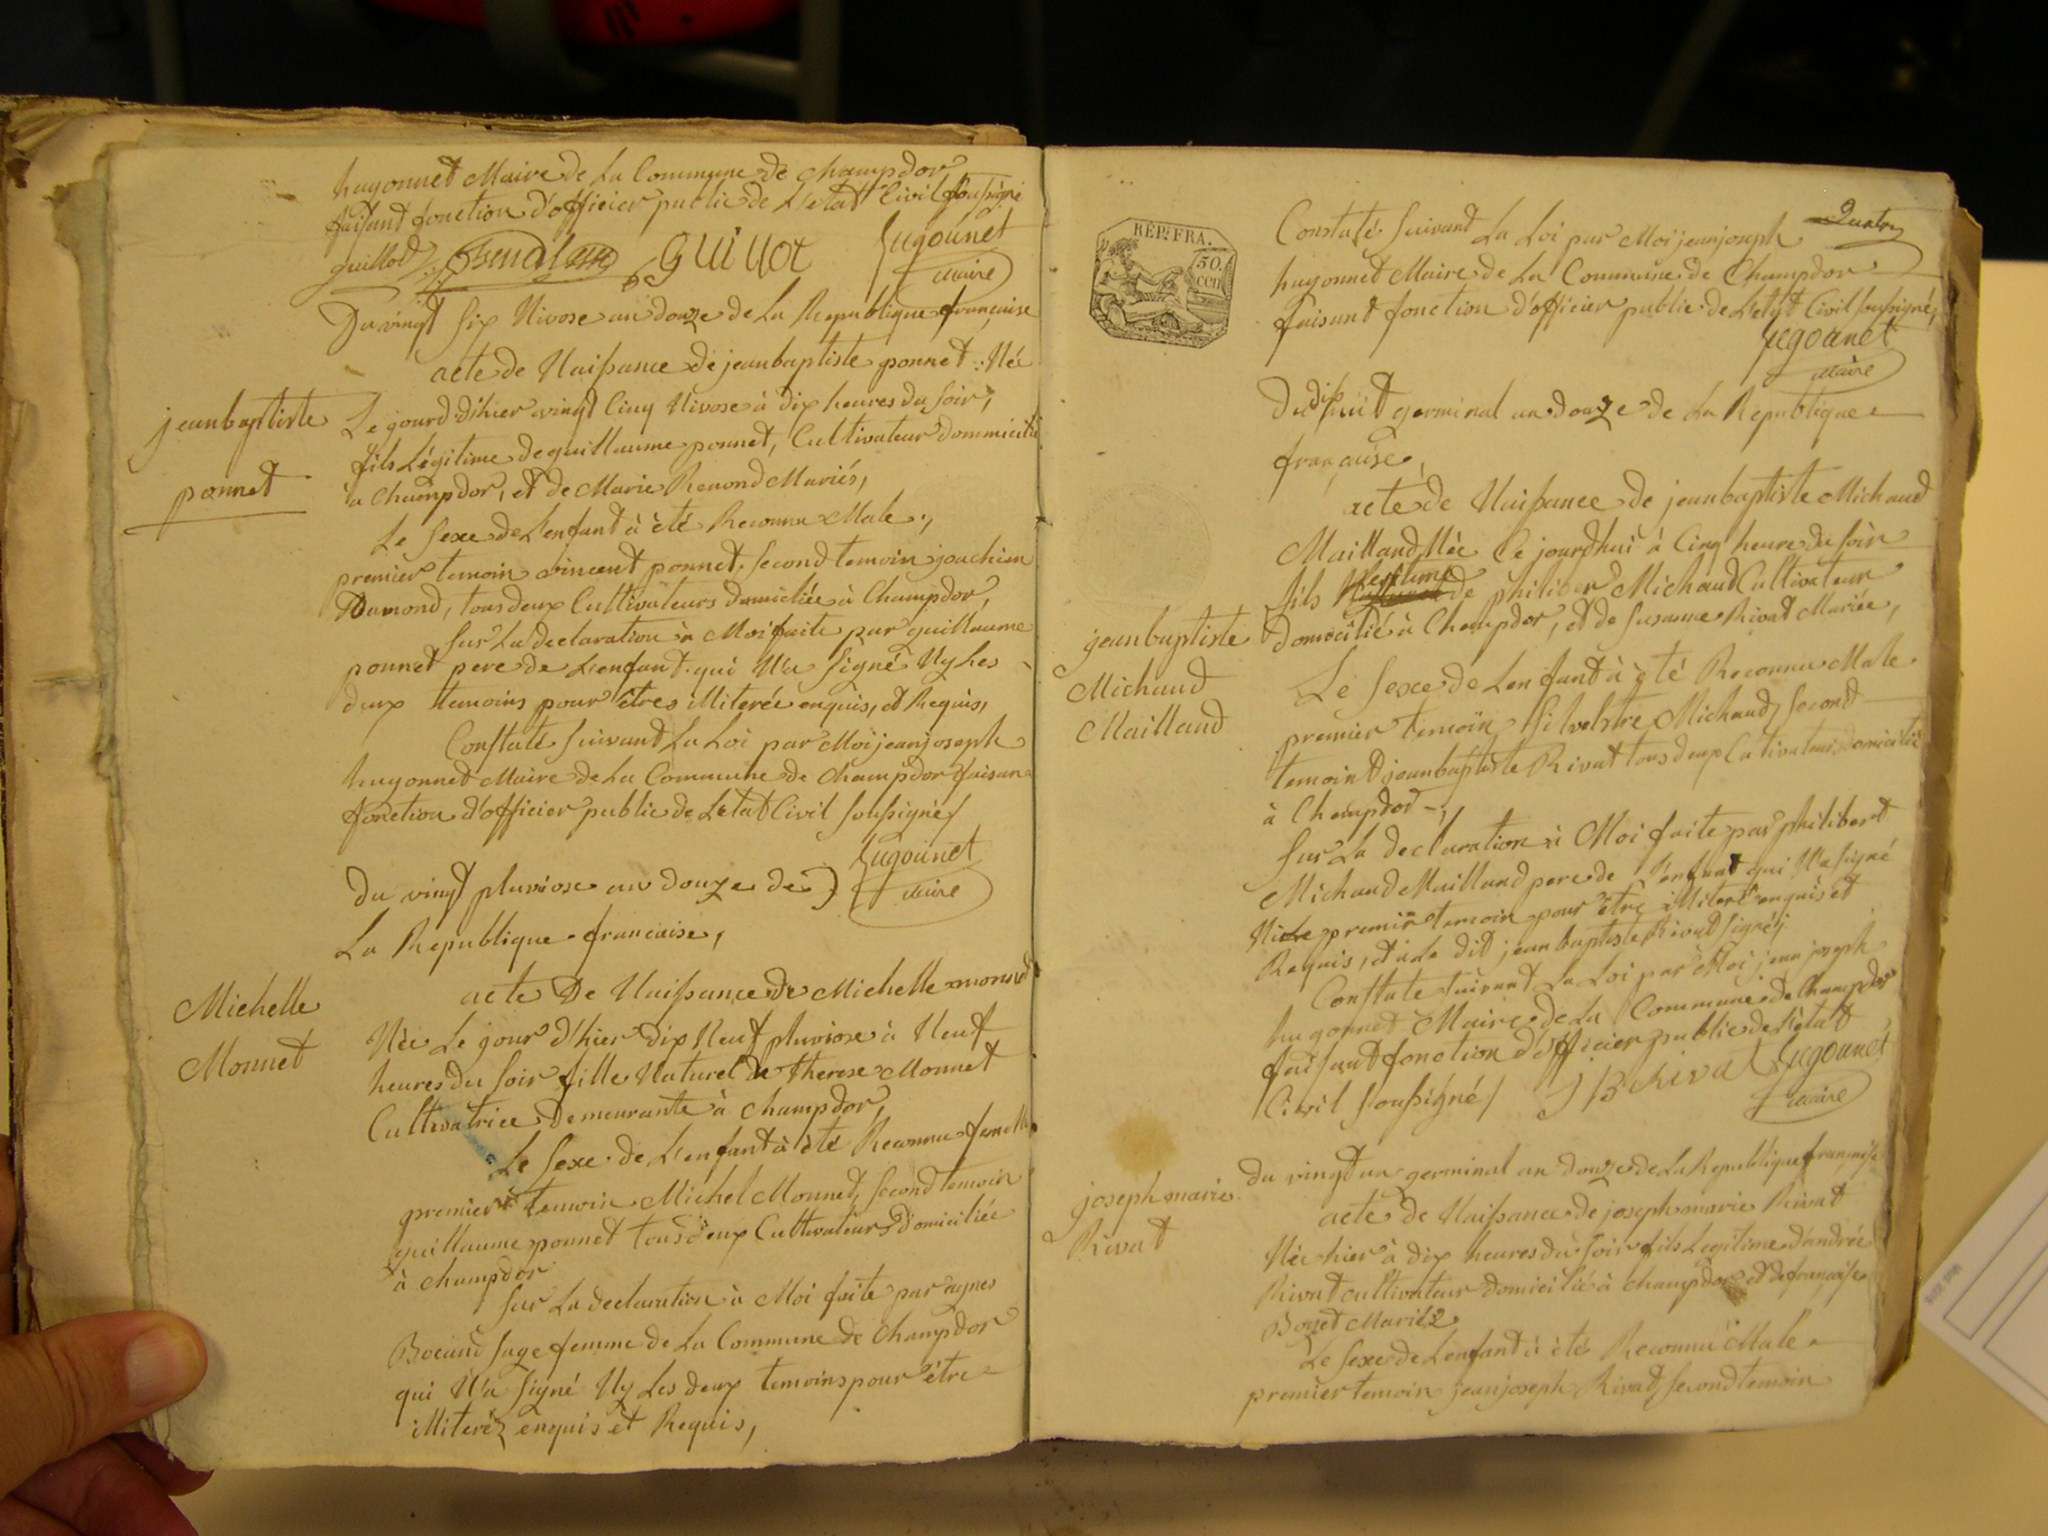 hugonnet Maire de La Commune de Champdor
faisant fonction d'officier public de L'etat Civil soussigné
guillot GUILLOT hugonnet
maire
Du vingt six Nivose an douze de La Republique française
acte de Naissance de jeanbaptiste ponnet Née
jeanbaptiste
ponnet
Le jourd'dhier vingt Cinq Nivose à dix heures du soir,
fils Légitime de guillaume ponnet, Cultivateur dommicilié
à Champdor, et de Marie Remond Mariés,
Le sexe de L'enfant à èté Reconnu Male,
premier temoin vincent ponnet, second temoin joachim
tous deux Cultivateurs domicilié à Champdor,
sur La declaration à Moi faite par guillaume
ponnet pere de L'enfant qui N'a signé Ny Les
deux temoins pour êtres illiterée enquis, et Requis,
Constaté suivant La Loi par Moi jeanjoseph
hugonnet Maire de La Commune de Champdor faisan
fonction d'officier public de Letat Civil soussigné/
hugonnet
maire
du vingt pluviose an douze de
La Republique francaise,
Michelle
Monnet
acte De Naissance de Michelle monnet
Née Le jour d'hier dix Neuf pluviose à Neuf
heures du soir fille Naturel de therese Monnet
Cultivatrice Demeurante à Champdor,
Le sexe de L'enfant à èté Reconnu femelle
premier temoin Michel Monnet, second temoin
guillaume ponnet tous deux Cultivateurs domiciliée
à champdor
sur La declaration à Moi faite par agnes
sage femme de La Commune de Champdor
qui N'a signé Ny Les deux temoins pour être
illiteréz enquis et Requis,
RÉP. FRA.
50.
cen
Quatre
Constaté suivant La Loi par Moi jeanjoseph
hugonnet Maire de La Commune de Champdor
faisant fonction d'officier public de L'etat Civil soussigné,
hugonnet
maire
Du dixhuit germinal an douze de La Republique
française,
acte de Naissance de jeanbaptiste Michaud
Mailland Née Ce jourdhui à Cinq heure du soir
Legitime
fils de philiber Michaud Cultivateur
domicilié à Champdor, et de susanne Rivat Mariée,
jeanbaptiste
Michaud
Mailland
Le sexe de Lenfant à èté Reconnu Male
premier temoin silvestre Michaud, second
temoint jeanbaptiste Rivat tous deux Cultivateurs domicilié
à Champdor
sur La declaration à Moi faite par philibert
Michaud Mailland pere de L'enfant qui N'a signé
Ni le premier temoin pour être illiteré enquis et
Requis, et à Le dit jeanbaptiste Rivat signé,
Constate suivant La Loi par Moi jean joseph
hugonnet Maire de La Commune de Champdor
faisant fonction d'officier public de L'etat
Civil soussigné/ J B RIVAT hugonnet
maire
du vingt un germinal an douze de La Republique française
joseph marie
Rivat
acte de Naissance de joseph marie Rivat
Née hier à dix heures du soir fils Legitime d'andrée
Rivat cultivateur domicilié à champdor et de françoise
Bonet Mariéz
Le sexe de Lenfant à èté Reconnu Male
premier temoin jeanjoseph Rivat, second temoin